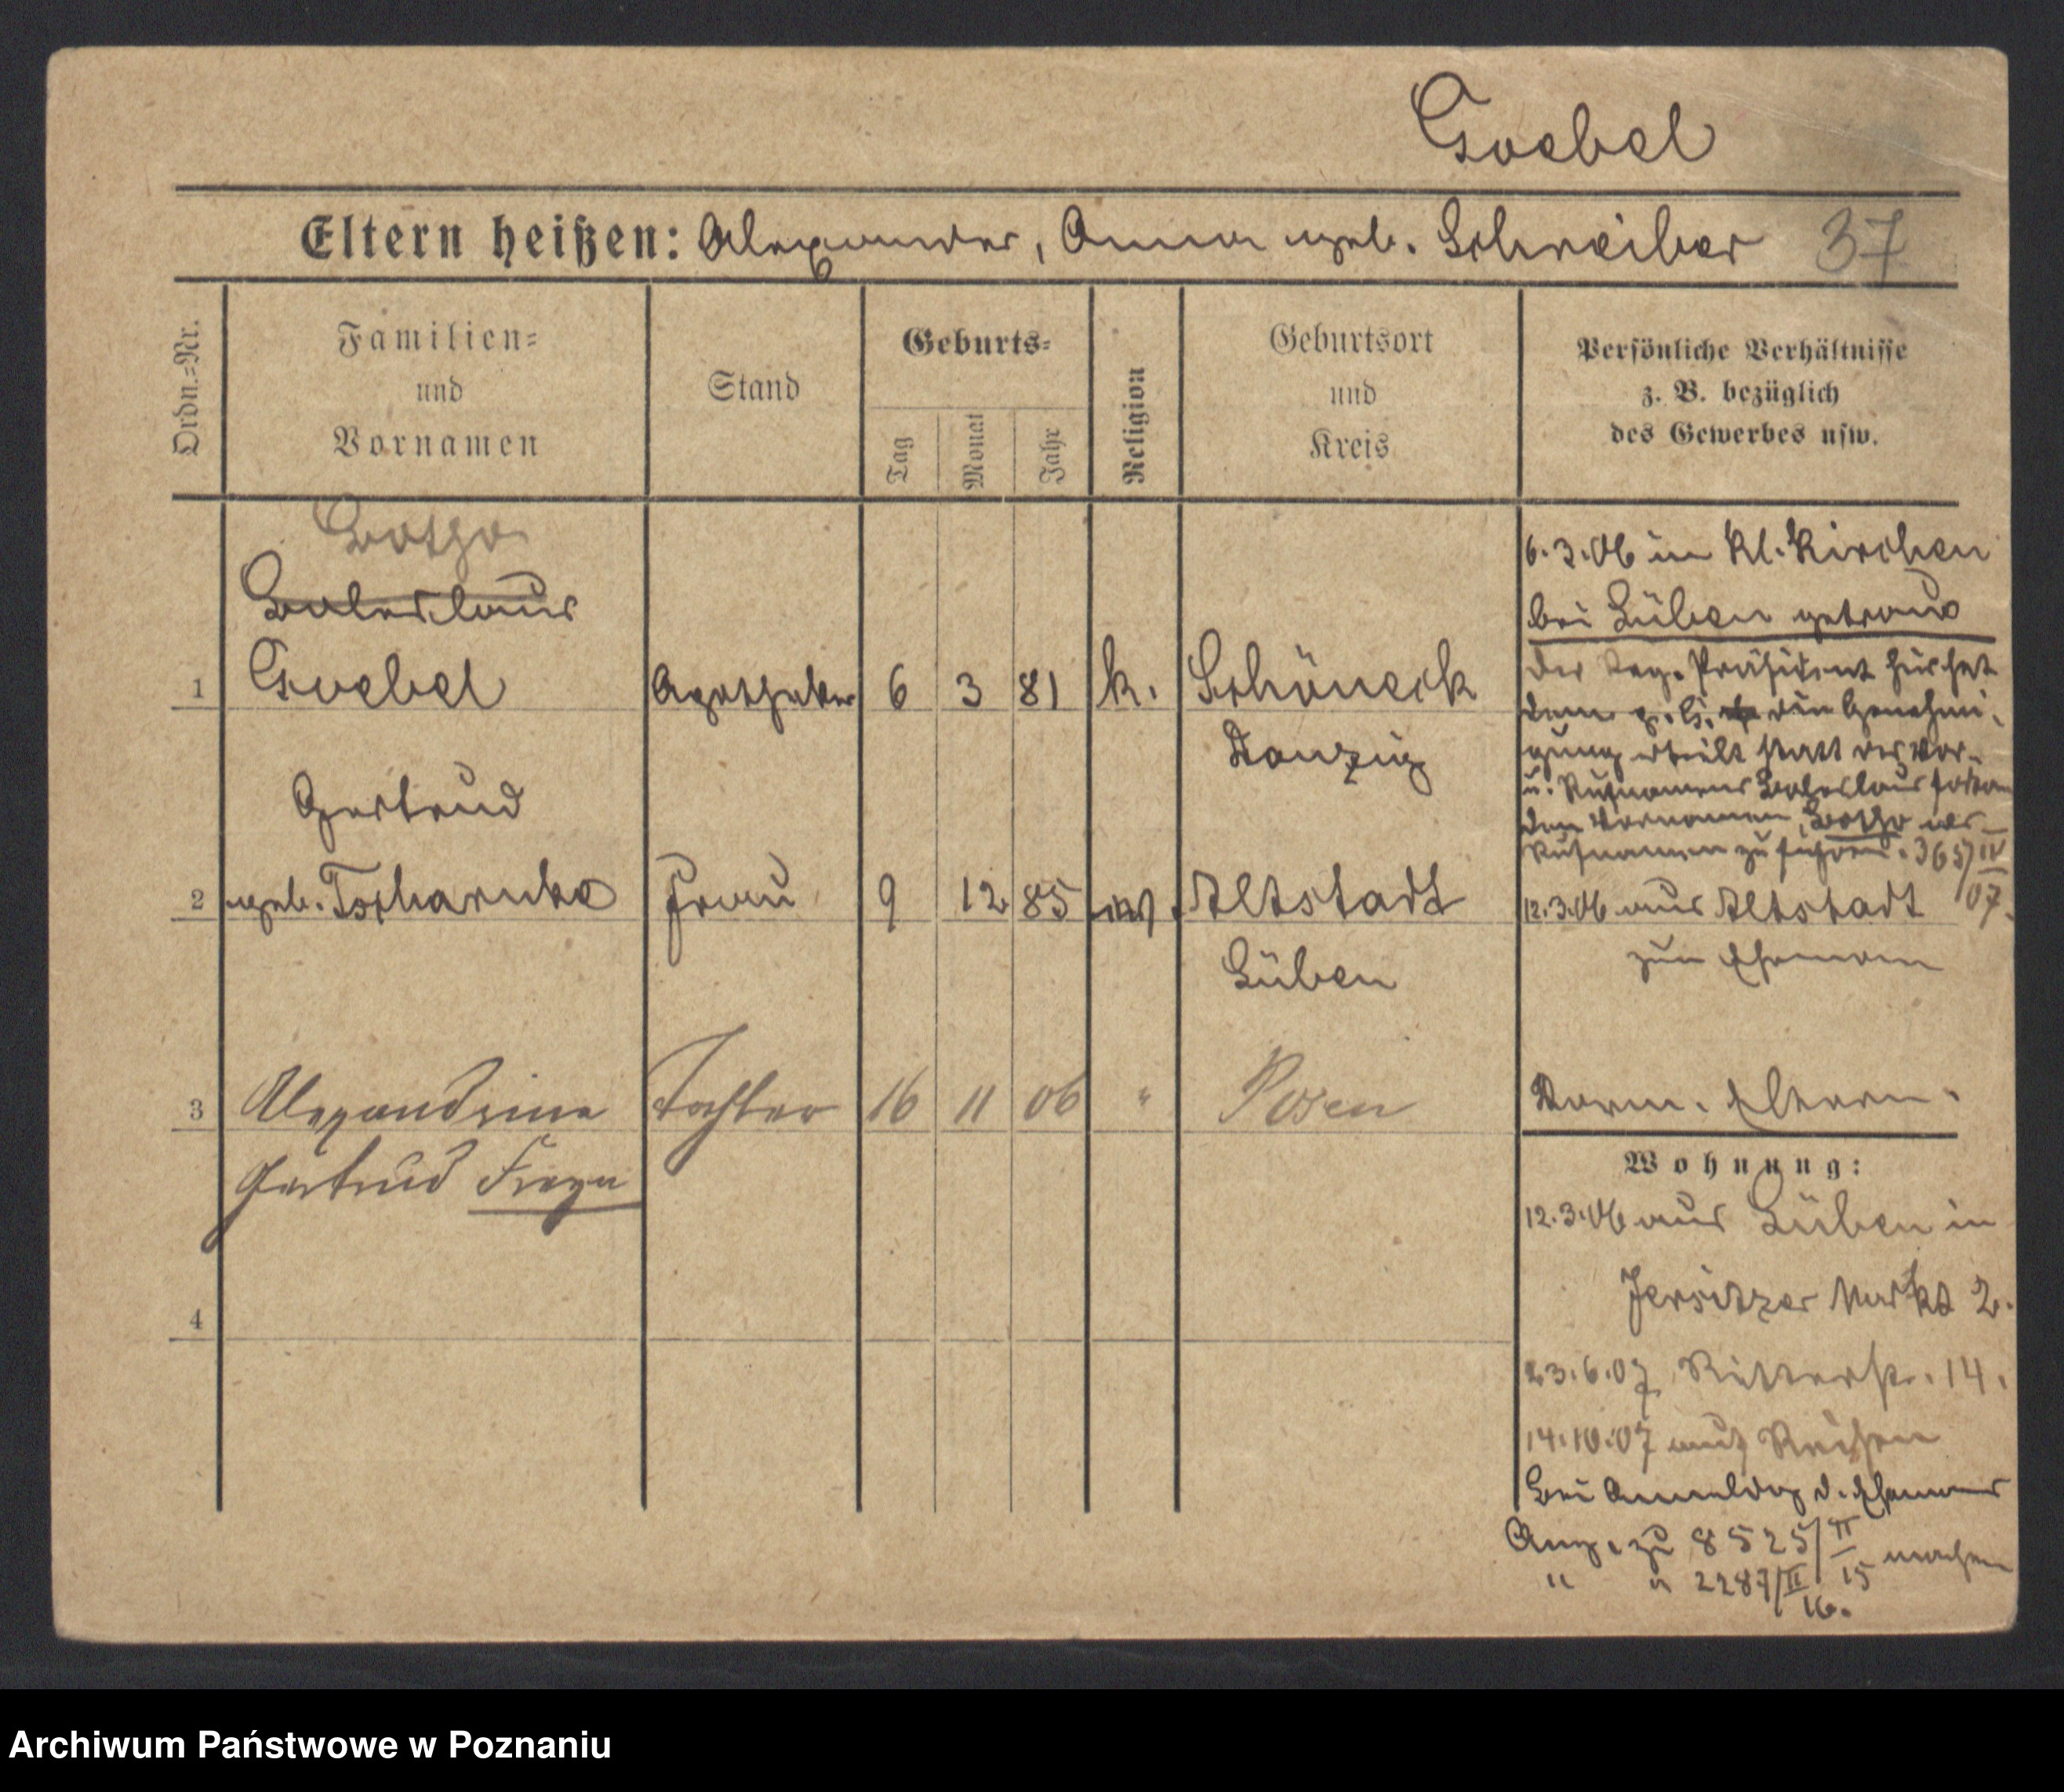 Goebel
Eltern heißen: Alexander, Anna geb. Schreiber 37
Ordn.=Nr.
Familien=
und
Vornamen
Stand
Geburts=
Tag
Monat
Jahr
Religion
Geburtsort
und
Kreis
Persönliche Verhältnisse
z. B. bezüglich
des Gewerbes usw.
Botho
Boleslaus
1 Goebel Apotheker 6 3 81 k. Schöneck
Danzig
6.3.06 in Kl. Kirchen
bei Lüben getraut
Der Reg. Präsident hier hat
dem g. G. die Genehmi-
gung erteilt statt des Vor-
u. Rufnamens Boleslaus fortan
den Vornamen Botho als
Rufnamen zu führen. 365/IV
07.
Gertrud
2 geb. Tscharnke Frau 9 12 85 ev. Altstadt
Lüben
12.3.06 aus Altstadt
zum Ehemann
3 Alexandrine Tochter 16 11 06 " Posen
Gertrud Freya
Verm. Eltern.
4
Wohnung:
12.3.06 aus Lüben in
Jersitzer Markt 2.
23.6.07 Ritterstr. 14.
14.10.07 auf Reisen
Bei Anmeldg d. Ehemanns
Anz. zu 8525/II
15 machen
" " 2287/II
16.
Archiwum Państwowe w Poznaniu